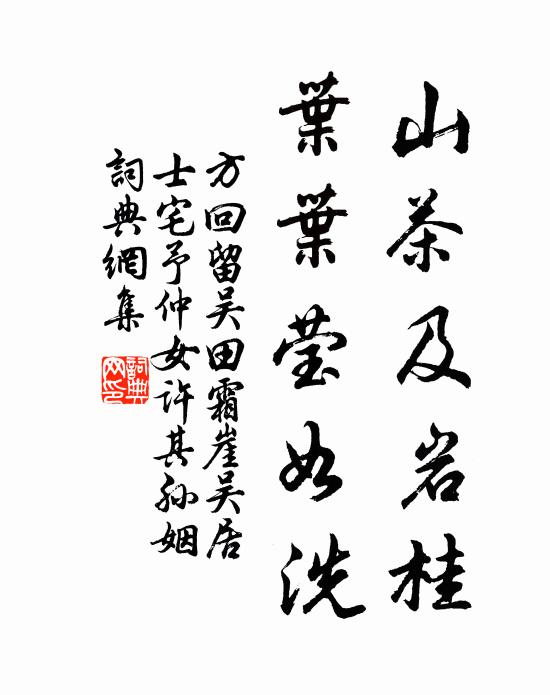 山茶及岩桂
葉葉莹如洗
方回留吴田霜崖吴居
士宅予仲女許其孫姻
詞典網集
詞典網印